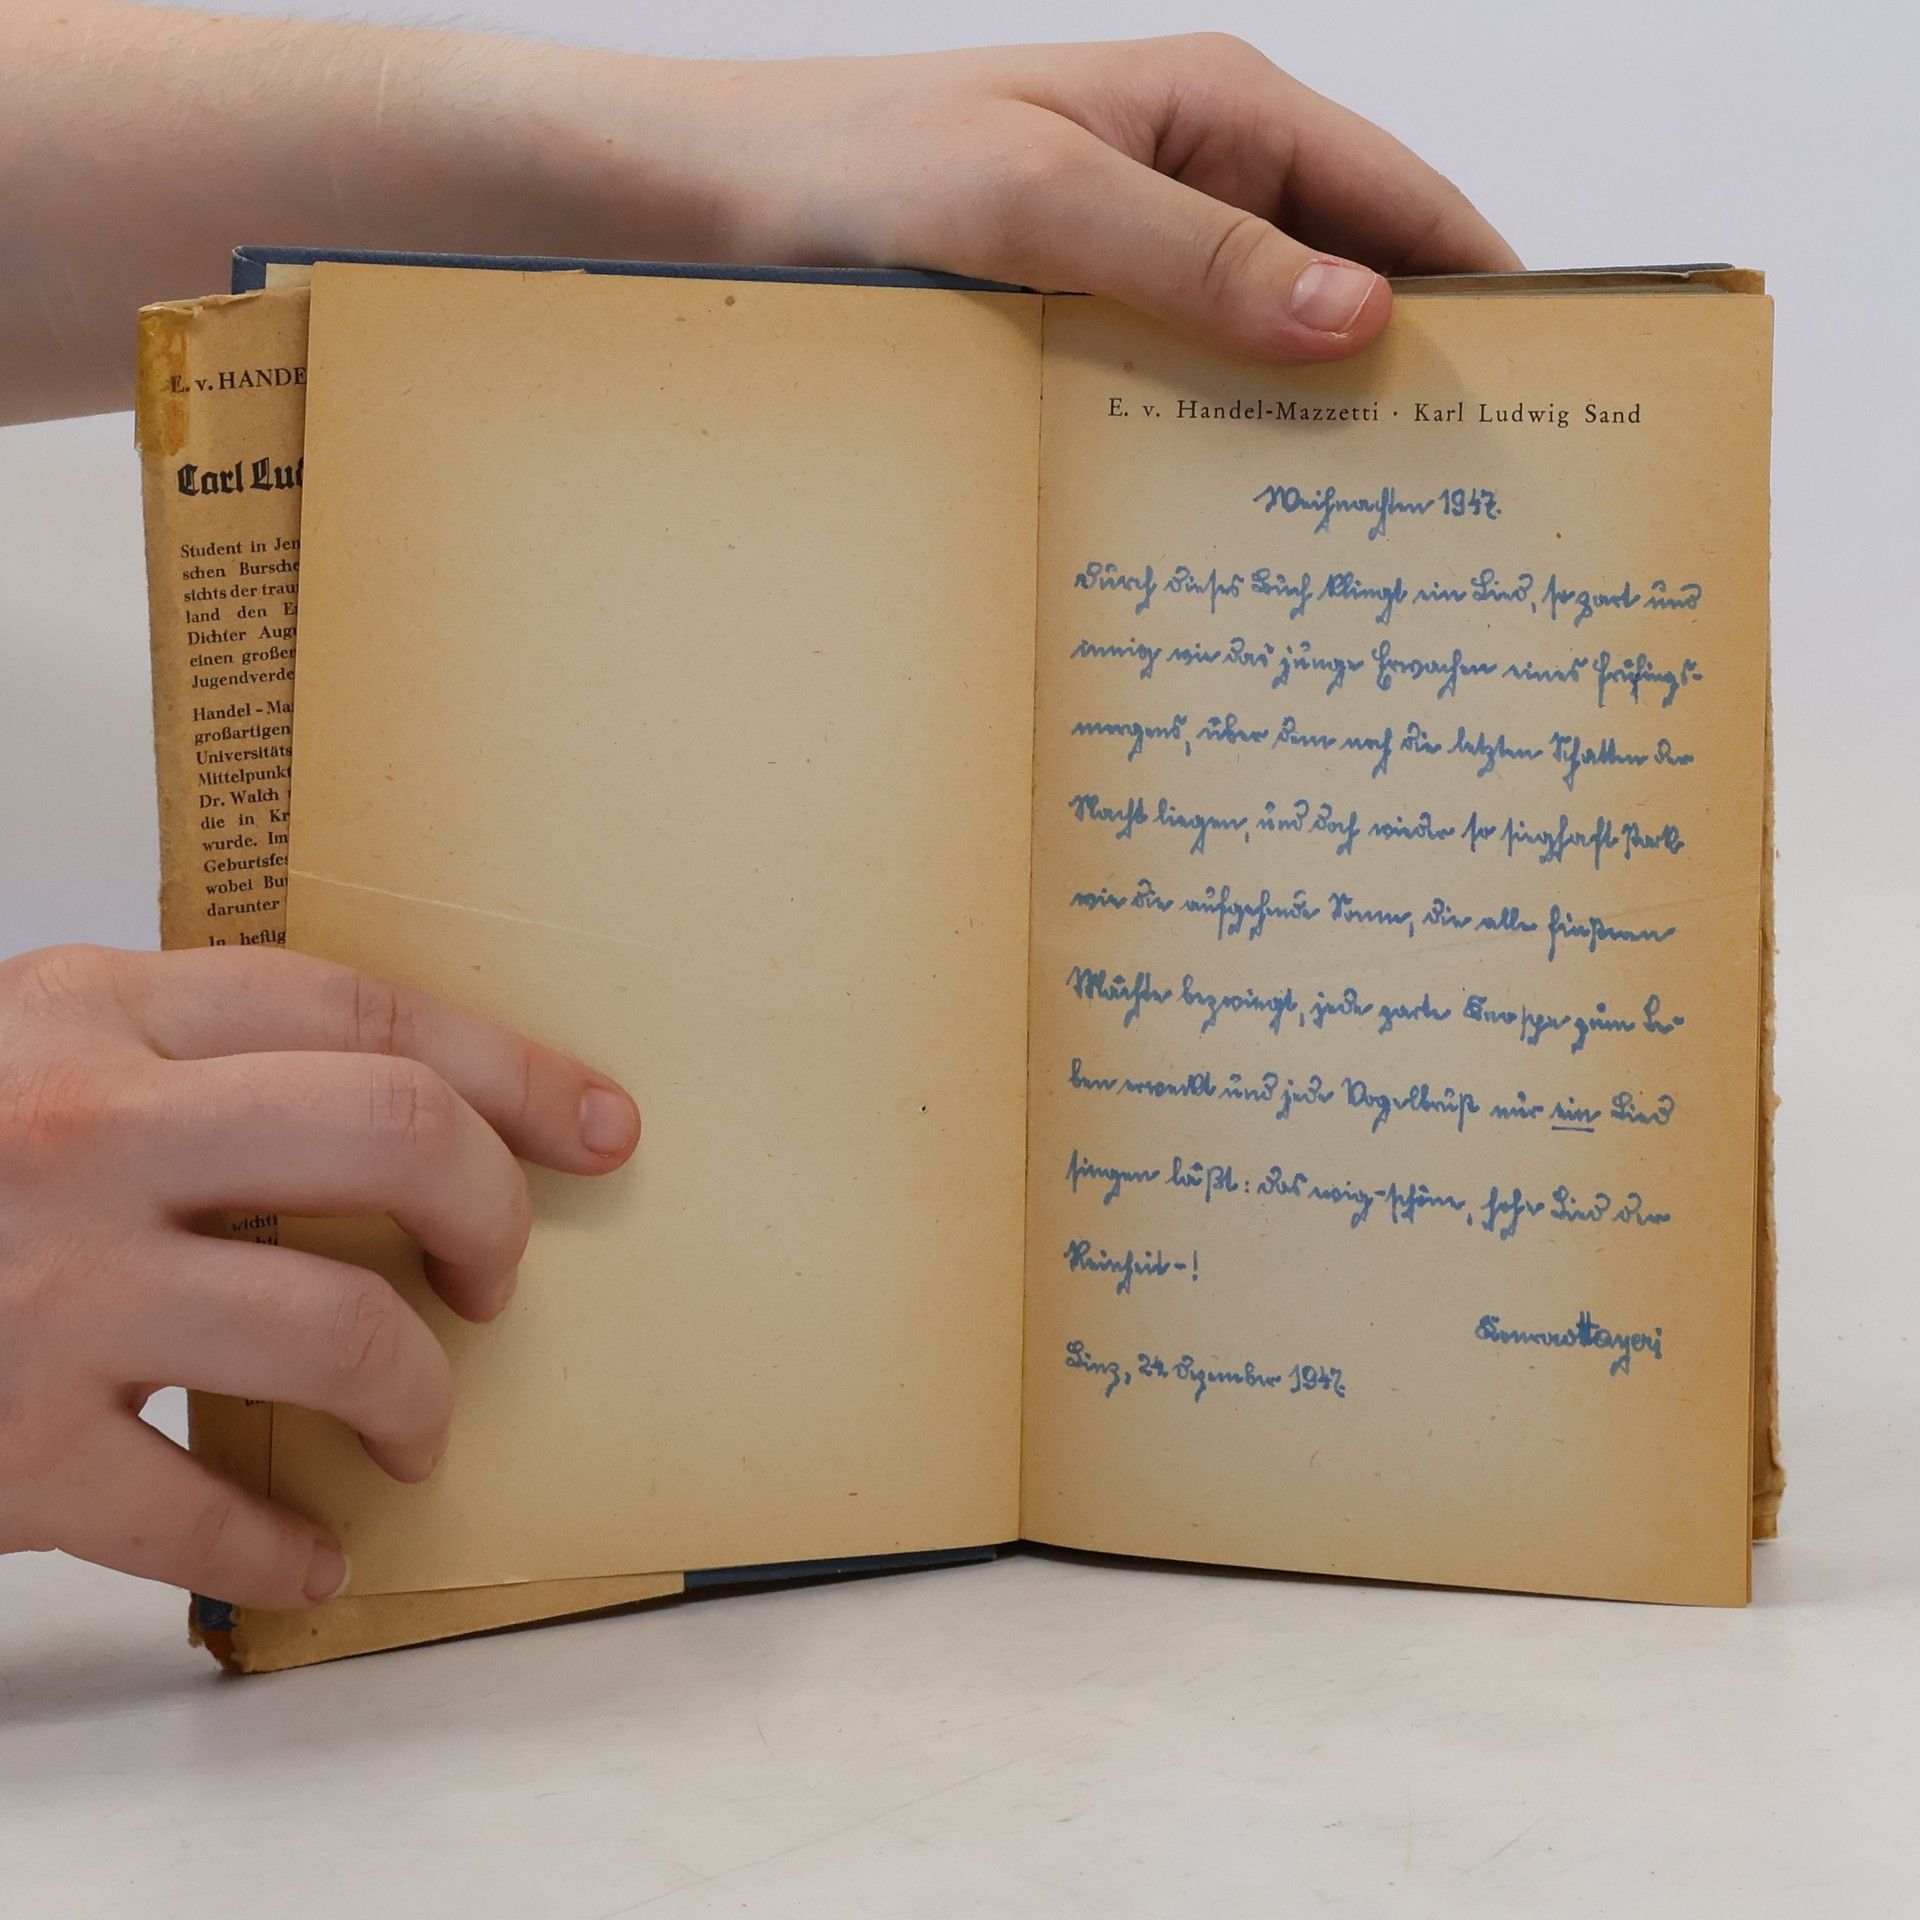 E. v. HANDE
Carl Lud
Student in Jen
schen Bursche
sichts der trau
land den E
Dichter Augu
einen großer
Jugendverde
Handel-Ma
großartigen
Universitäts
Mittelpunkt
Dr. Walch
die in Kr
wurde. Im
Geburtsfes
wobei Bu
darunter
In heftig
E. v. Handel-Mazzetti · Karl Ludwig Sand
Weihnachten 1947.
Durch dieses Buch klingt ein Lied, so zart und
innig wie das junge Erwachen eines Frühlings-
morgens, über dem noch die letzten Schatten der
Nacht liegen, und doch wieder so sieghaft stark
wie die aufgehende Sonne, die alle finsteren
Mächte bezwingt, jede zarte Knospe zum Le-
ben erweckt und jede Vogelbrust nur ein Lied
singen läßt: das ewig-schöne, hohe Lied der
Reinheit-!
Konrad
Linz, 24. Dezember 1947.